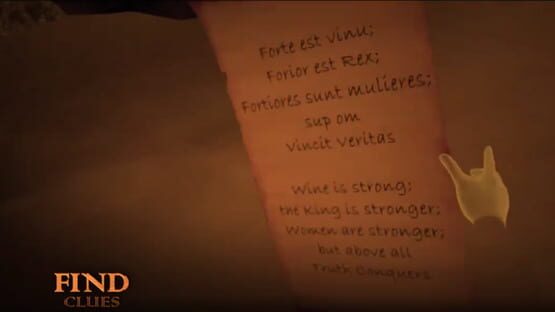 Forte est vinu;
Forior est Rex;
Fortiores sunt mulieres;
sup om
vincit veritas
Wine is strong;
the King is stronger;
Women are stronger;
but above all
Truth Conquers
FIND
CLUES